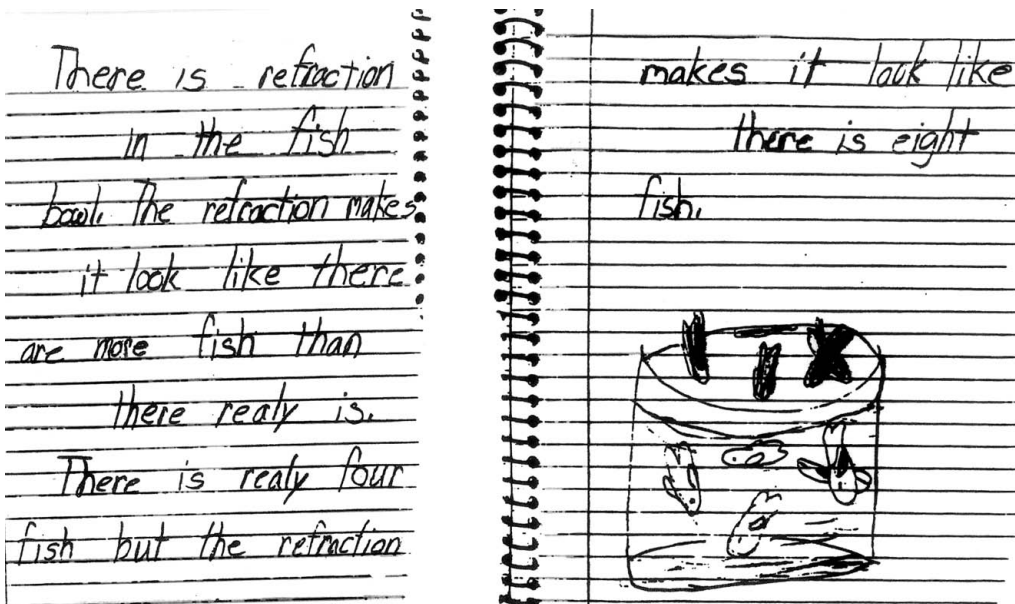 There is refraction
in the fish
bowl. The refraction makes
it look like there
are more fish than
there realy is.
There is realy four
fish but the refraction
makes it look like
there is eight
fish.